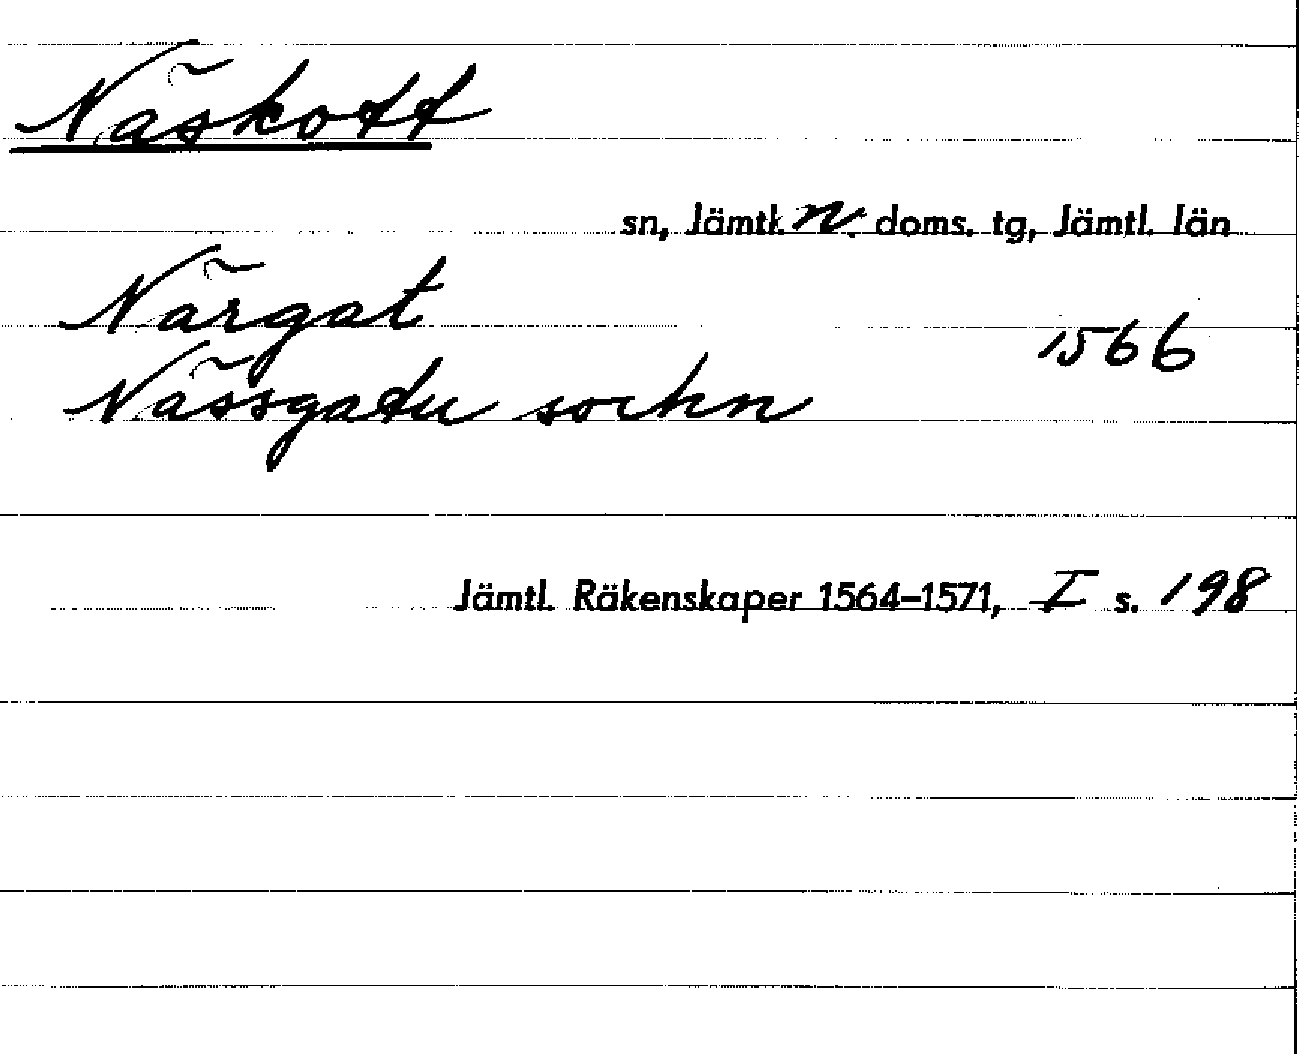 Näskott
sn, Jämtl. n. doms. tg, Jämtl. län
Närgat
1566
Nässgatu sockn
Jämtl. Räkenskaper 1564–1571, I s. 198